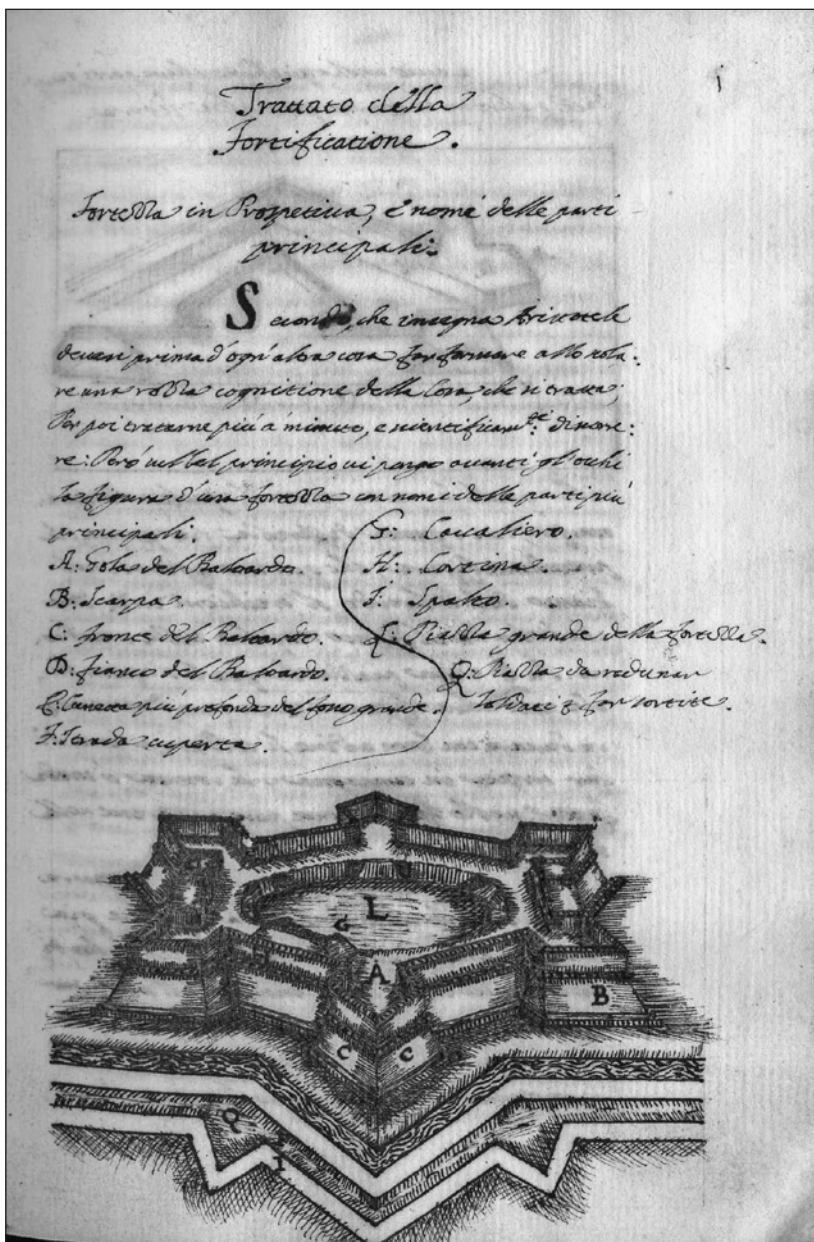 1
Trattato della
Fortificatione.
Fortezza in Prospetiua, e nomi delle parti
principali:
Secondo, che insegna Aristotele
deuesi prima d'ogn'altra cosa far formare allo scola:
re una rozza cognitione della Cosa, che si tratta;
Per poi tratarne più à minuto, e scientificam.te discore:
re: Però nel bel principio ui pongo auanti gl'occhi
la figura d'una fortezza con nomi delle parti più
principali.
A: Gola del Baloardo.
B: Scarpa.
C: fronte del Baloardo.
D: fianco del Baloardo.
E: Cunetta più profonda del fosso grande.
F: Strada cuperta.
G: Caualiero.
H: Cortina.
I: Spalto.
L: Piazza grande della fortezza.
Q: Piazza da redunar
soldati & far sortite.
L
G
A
B
C C
Q
I